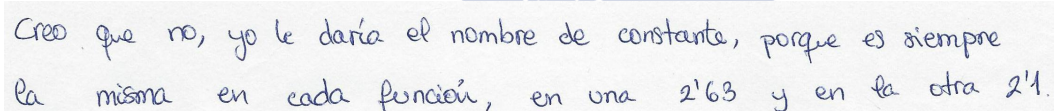 Creo que no, yo le daría el nombre de constante, porque es siempre
la misma en cada función, en una 2'63 y en la otra 2'1.